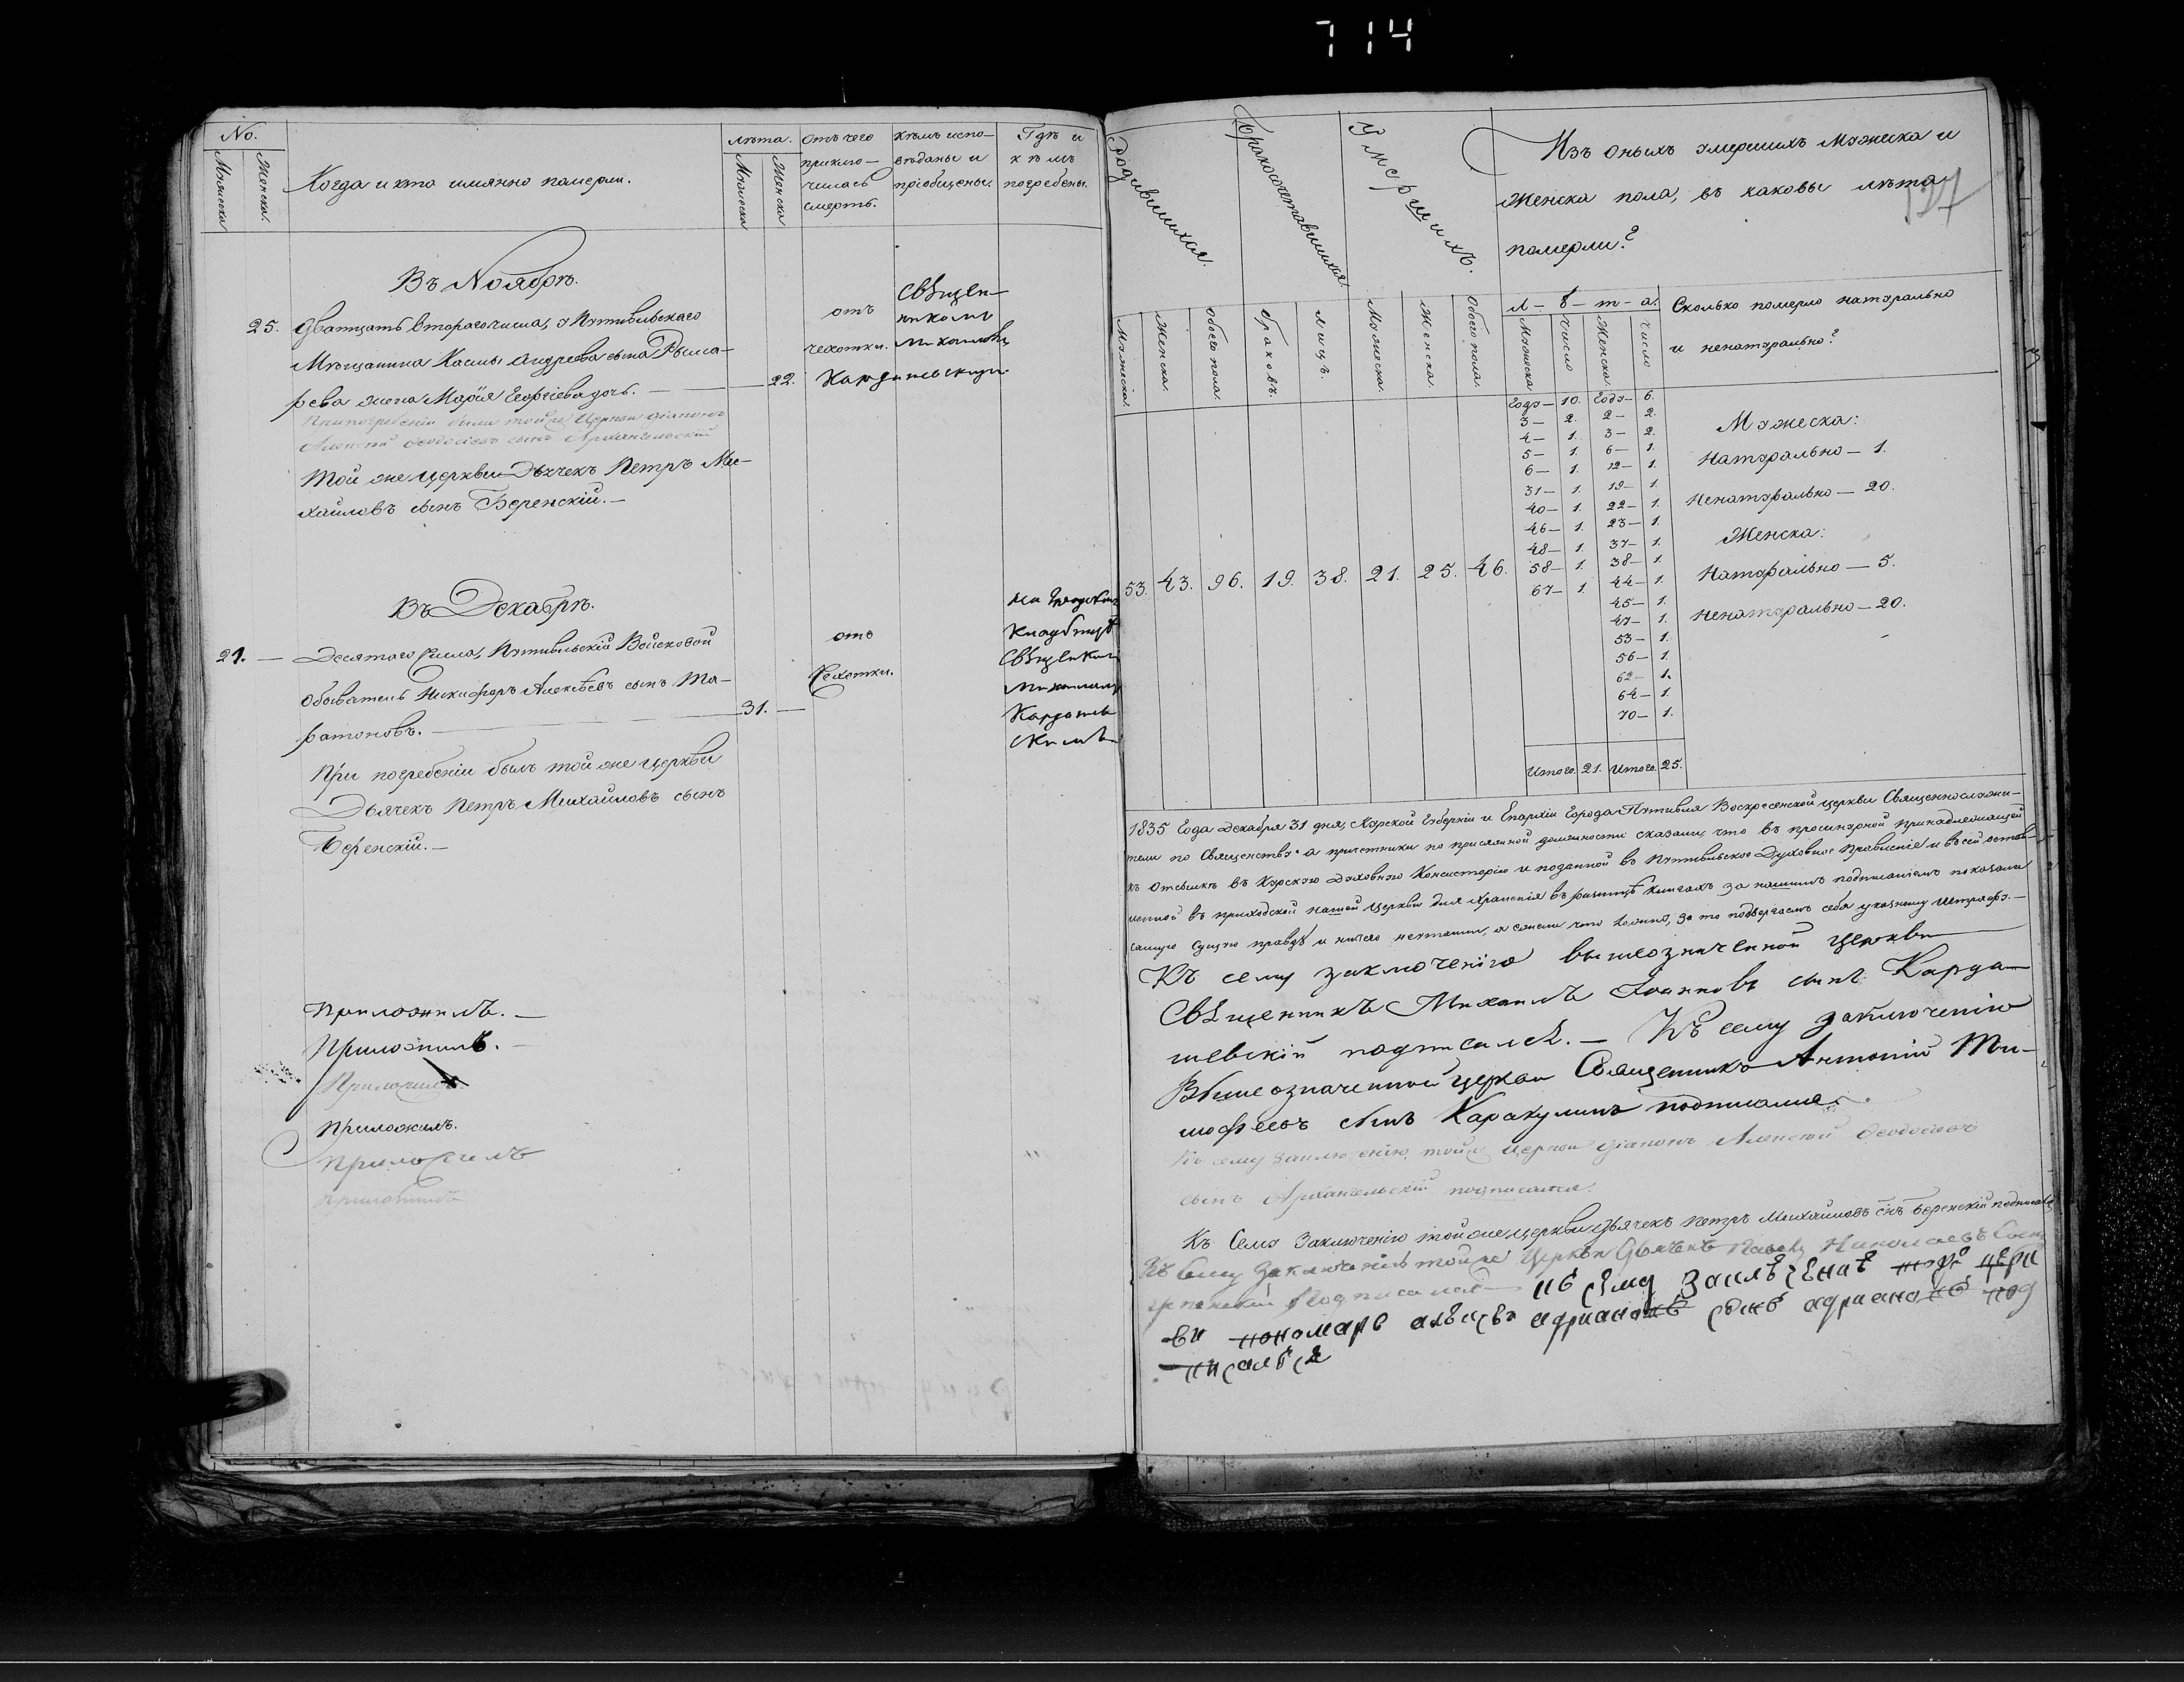 714
No.
Мужеска
Женска.
Когда и кто имянно померли.
лѣта.
Мужеска
Женска
Отъ чего приклю-
чилась
смерть.
кѣмъ испо-
вѣданы и
прiобщены.
Гдѣ и
кѣмъ
погребены.
Въ Ноябрѣ.
25. Дватцать втораго числа, у Путивльскаго
Мѣщанина Касмы Андреева сына
рева жена Марiя Георгiева дочь. — 22.
отъ
чехотки.
Свѣщен-
никомъ
Михаиломъ
Кардашевскимъ
При погребенiи были тойже Церкви дiаконъ
Алексѣй Феодосiевъ сынъ Архангельскiй
Той же церкви Дьячекъ Петръ Ми-
хаиловъ сынъ Беренскiй. —
Въ Декабрѣ.
21. — Десятаго числа, Путивльскiй Войсковой
обыватель Никифоръ Алексѣевъ сынъ Та-
ратоновъ. — 31. —
отъ
Чехотки.
на Градском
Кладбищѣ
Свѣщенник
Михаилом
Кардаше
скимъ
При погребенiи былъ той же церкви
Дьячекъ Петръ Михаиловъ сынъ
Беренскiй. —
Приложилъ. —
Приложилъ. —
Приложилъ
Приложилъ.
Приложилъ
приложилъ
Родившихся.
Бракосочетавшихся.
Умершихъ.
Изъ оныхъ умершихъ Мужеска и
Женска пола, въ каковы лѣта
померли?
Мужеска.
Женска.
Обоего пола.
браковъ.
лицъ.
Мужеска.
Женска.
Обоего пола.
Л-ѣ-т-а.
Мужеска
число
Женска.
число
Сколько померло натурально
и ненатурально?
Году— 10. Году— 6.
3— 2. 2— 2.
4— 1. 3— 2.
5— 1. 6— 1.
6— 1. 12— 1.
31— 1. 19— 1.
40— 1. 22— 1.
46— 1. 23— 1.
48— 1. 37— 1.
58— 1. 38— 1.
67— 1. 44— 1.
45— 1.
47— 1.
53— 1.
56— 1.
62— 1.
64— 1.
70— 1.
53. 43. 96. 19. 38. 21. 25. 46.
Мужеска:
Натурально— 1.
Ненатурально— 20.
Женска:
Натурально— 5.
Ненатурально— 20.
Итого. 21. Итого. 25.
1835 Года Декабря 31 дня, Курской Губернiи и Епархiи Города Путивля Воскресенской церкви Священнослужи-
тели по Священству, а причетники по присяжной должности сказали, что въ прошнурной принадлежащей
къ отсылкѣ въ Курскую Духовную Консисторiю и поданной въ Путивльское Духовное Правленiе и въ сей остав-
ленной въ приходской нашей церкви для храненiя въ ризницѣ книгахъ за нашимъ подписанiемъ показали
самую сущую правду и ничего неутаили, а ежели что ложно, за то подвергаемъ себя указному штрафу. —
Къ сему заключенiю вышеозначенной церкви
Свѣщенникъ Михаилъ Iоанновъ сынъ Карда-
шевскiй подписался. — Къ сему заключенiю
Вышеозначенной церкви Священникъ Антонiй Ти-
мофѣевъ сынъ Каракулинъ подписался.
Къ сему заключенiю тойже Церкви дiаконъ Алексѣй Феодосiевъ
сынъ Архангельскiй подписался.
Къ Сему Заключенiю той же церкви Дьячекъ Петръ Михайловъ снъ Беренскiй подписался
Къ Сему Заключенiю тойже Церкви Дьячекъ Николаевъ Сынъ
подписался — къ сему заключенiю церк
ви пономарь адриановъ сынъ адриановъ под
писался